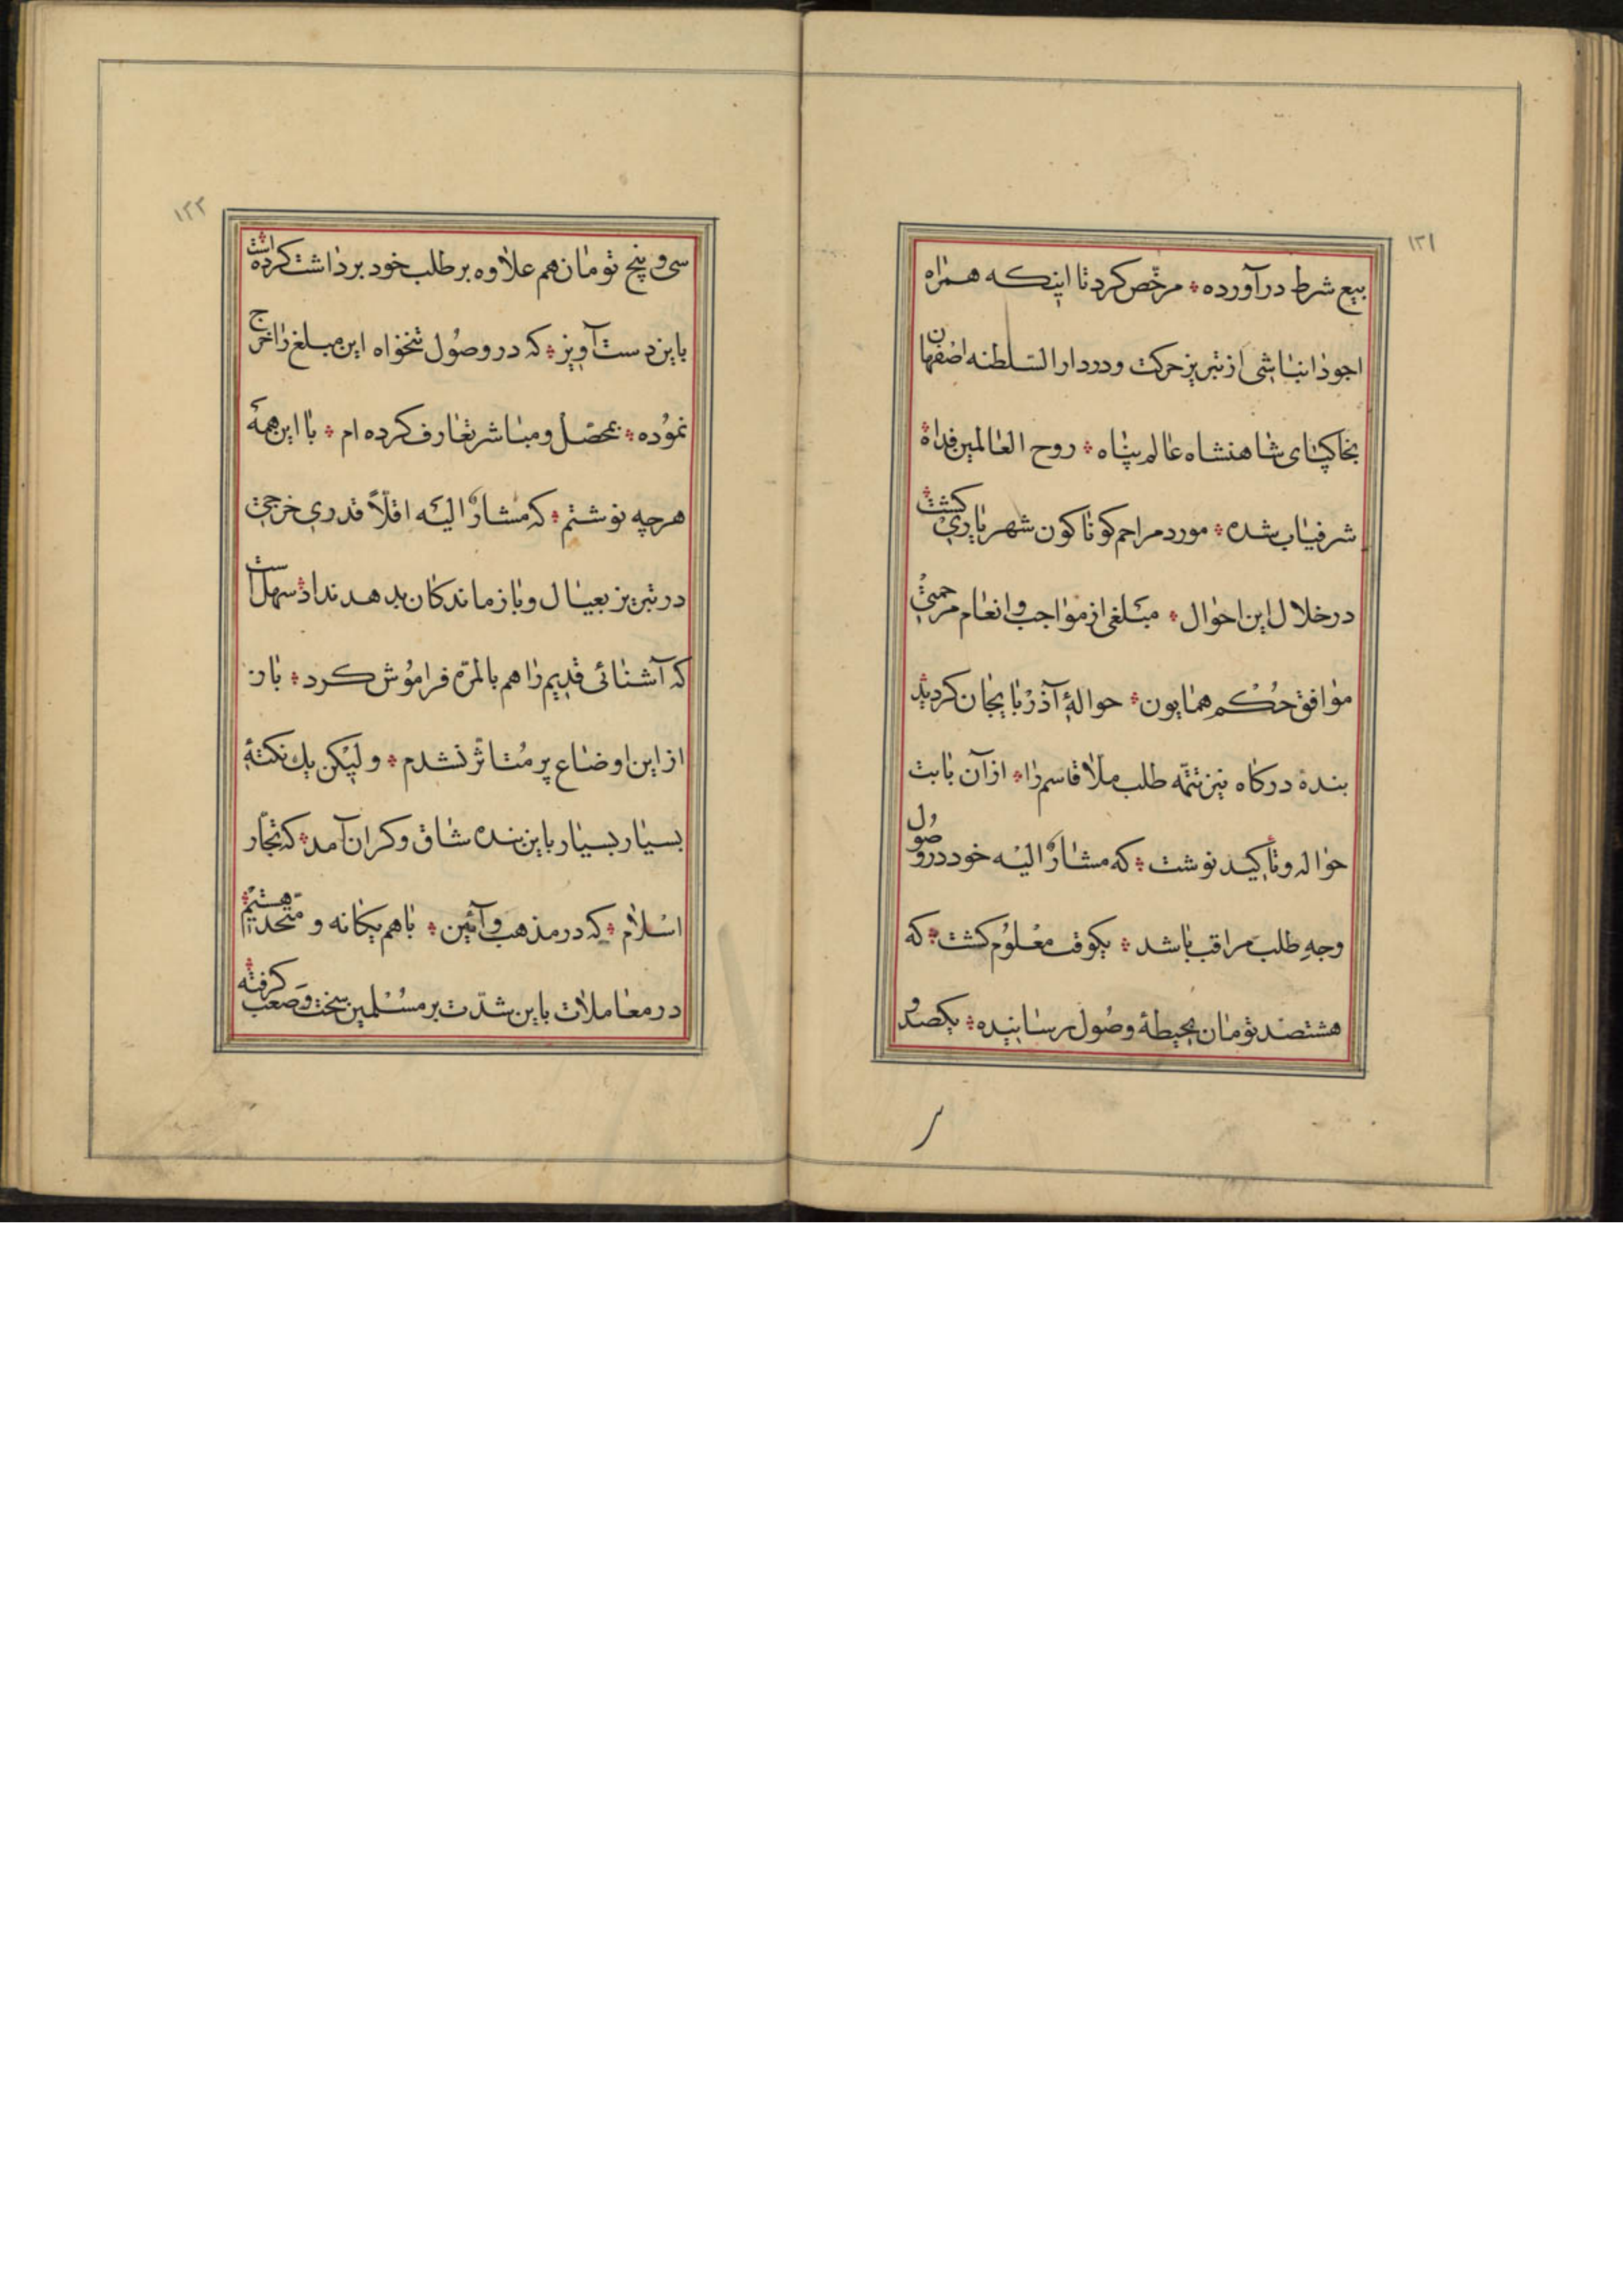 ۱۲۱
بیع شرط درآورده ؞ مرخّص کرد تا اینکه همراه
اجودانباشی از تبریز حرکت و در دار السلطنه اصفهان
بخاکپای شاهنشاه عالم پناه ؞ روح العالمین فداه ؞
شرفیاب شده ؞ مورد مراحم کوناکون شهریاری کشت ؞
در خلال این احوال ؞ مبلغی از مواجب و انعام مرحمتی
موافق حکم همایون ؞ حوالهٔ آذربایجان کردید
بنده درکاه نیز تتمّه طلب ملّا قاسم را ؞ از آن بابت
حواله و تأکید نوشت ؞ که مشارٌ الیه خود در وصول
وجهِ طلب مراقب باشد ؞ یکوقت معلوم کشت ؞ که
هشتصد تومان بحیطهٔ وصول رسانیده ؞ یکصد و
۱۲۲
سی و پنج تومان هم علاوه بر طلب خود برداشت کرده است ؞
باین دست آویز ؞ که در وصول تنخواه این مبلغ را خرج
نموده ؞ بمحصّل و مباشر تعارف کرده ام ؞ با این همهٔ
هرچه نوشتم ؞ که مشارٌ الیه اقلّاً قدری خرجی
در تبریز بعیال و بازماندکان بدهد نداد ؞ سهل است
که آشنائی قدیم را هم بالمرّه فراموش کرد ؞ باز
از این اوضاع پر متاثّر نشدم ؞ ولیکن یک نکتهٔ
بسیار بسیار باین بنده شاق و کران آمد ؞ که تجّار
اسلام ؞ که در مذهب و آئین ؞ با هم یکانه و متّحدیم هستیم ؞
در معاملات باین شدّت بر مسلمین سخت و صعب کرفته ؞